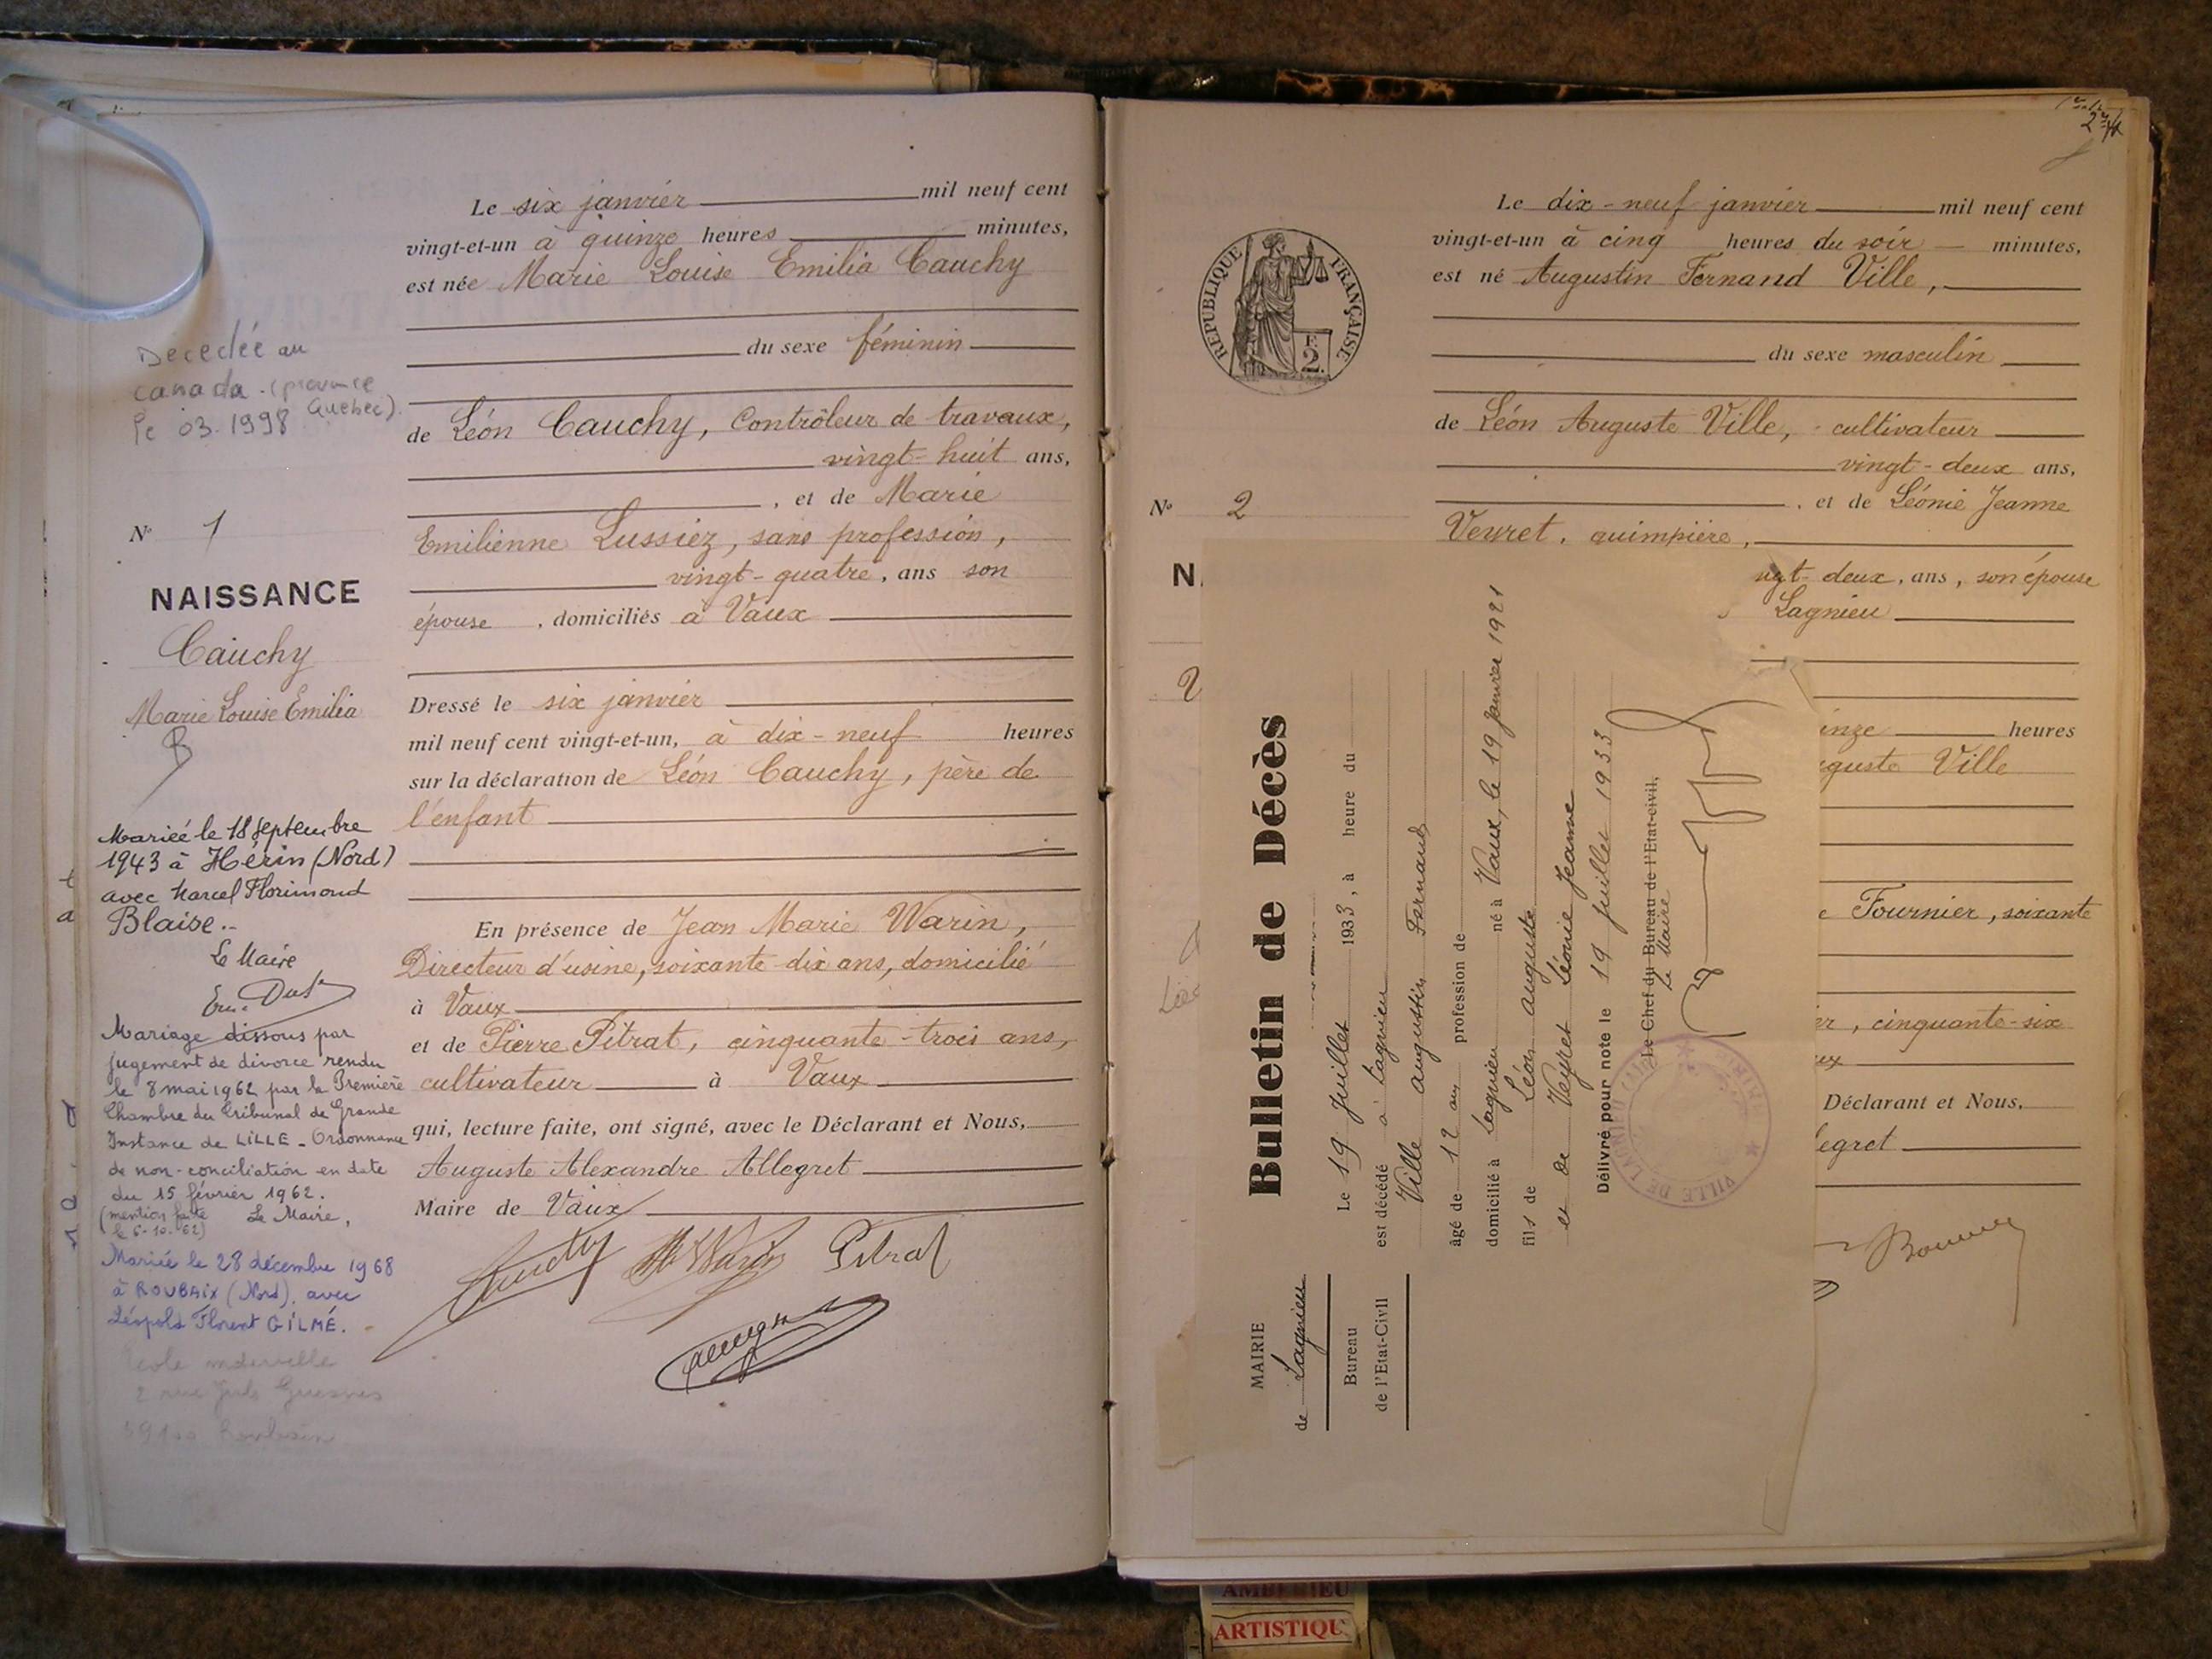 Décédée au
Canada. (province
Quebec).
le 03.1998
N° 1
NAISSANCE
Cauchy
Marie Louise Emilia
Mariée le 18 septembre
1943 à Hérin (Nord)
avec Marcel Florimond
Blaise.-
Le Maire
Mariage dissous par
jugement de divorce rendu
le 8 mai 1962 par la Première
Chambre du Tribunal de Grande
Instance de LILLE - Ordonnance
de non-conciliation en date
du 15 février 1962.
(mention faite Le Maire,
le 6-10-62)
Mariée le 28 décembre 1968
à ROUBAIX (Nord), avec
Léopold Florent GILMÉ.
Le six janvier mil neuf cent
vingt-et-un à quinze heures minutes,
est née Marie Louise Emilia Cauchy
du sexe féminin
de Léon Cauchy, Contrôleur de travaux,
vingt-huit ans,
, et de Marie
Emilienne Lussiez, sans profession,
vingt-quatre, ans son
épouse , domiciliés à Vaux
Dressé le six janvier
mil neuf cent vingt-et-un, à dix-neuf heures
sur la déclaration de Léon Cauchy, père de
l'enfant
En présence de Jean Marie Warin,
Directeur d'usine, soixante-dix ans, domicilié
à Vaux
et de Pierre Pitrat, cinquante-trois ans,
cultivateur à Vaux
qui, lecture faite, ont signé, avec le Déclarant et Nous,
Auguste Alexandre Allegret
Maire de Vaux
Pitrat
REPUBLIQUE FRANÇAISE
F.
2.
N° 2
N.
Le dix-neuf janvier mil neuf cent
vingt-et-un à cinq heures du soir minutes,
est né Augustin Fernand Ville,
du sexe masculin
de Léon Auguste Ville, cultivateur
vingt-deux ans,
, et de Léonie Jeanne
Veyret, guimpière,
ngt-deux, ans, son épouse
Lagnieu
inze heures
guste Ville
e Fournier, soixante
er, cinquante-six
ux
Déclarant et Nous,
legret
MAIRIE
de Lagnieu
Bureau
de l'Etat-Civil
Bulletin de Décès
Le 19 Juillet 1933, à heure du
est décédé à Lagnieu
Ville Augustin Fernand
âgé de 12 ans profession de
domicilié à Lagnieu né à Vaux, le 19 janvier 1921
fils de Léon Auguste
et de Veyret Léonie Jeanne
Délivré pour note le 19 juillet 1933
Le Chef du Bureau de l'Etat-civil,
Le Maire
VILLE DE LAGNIEU (AIN)
MAIRIE
AMBERIEU
ARTISTIQU